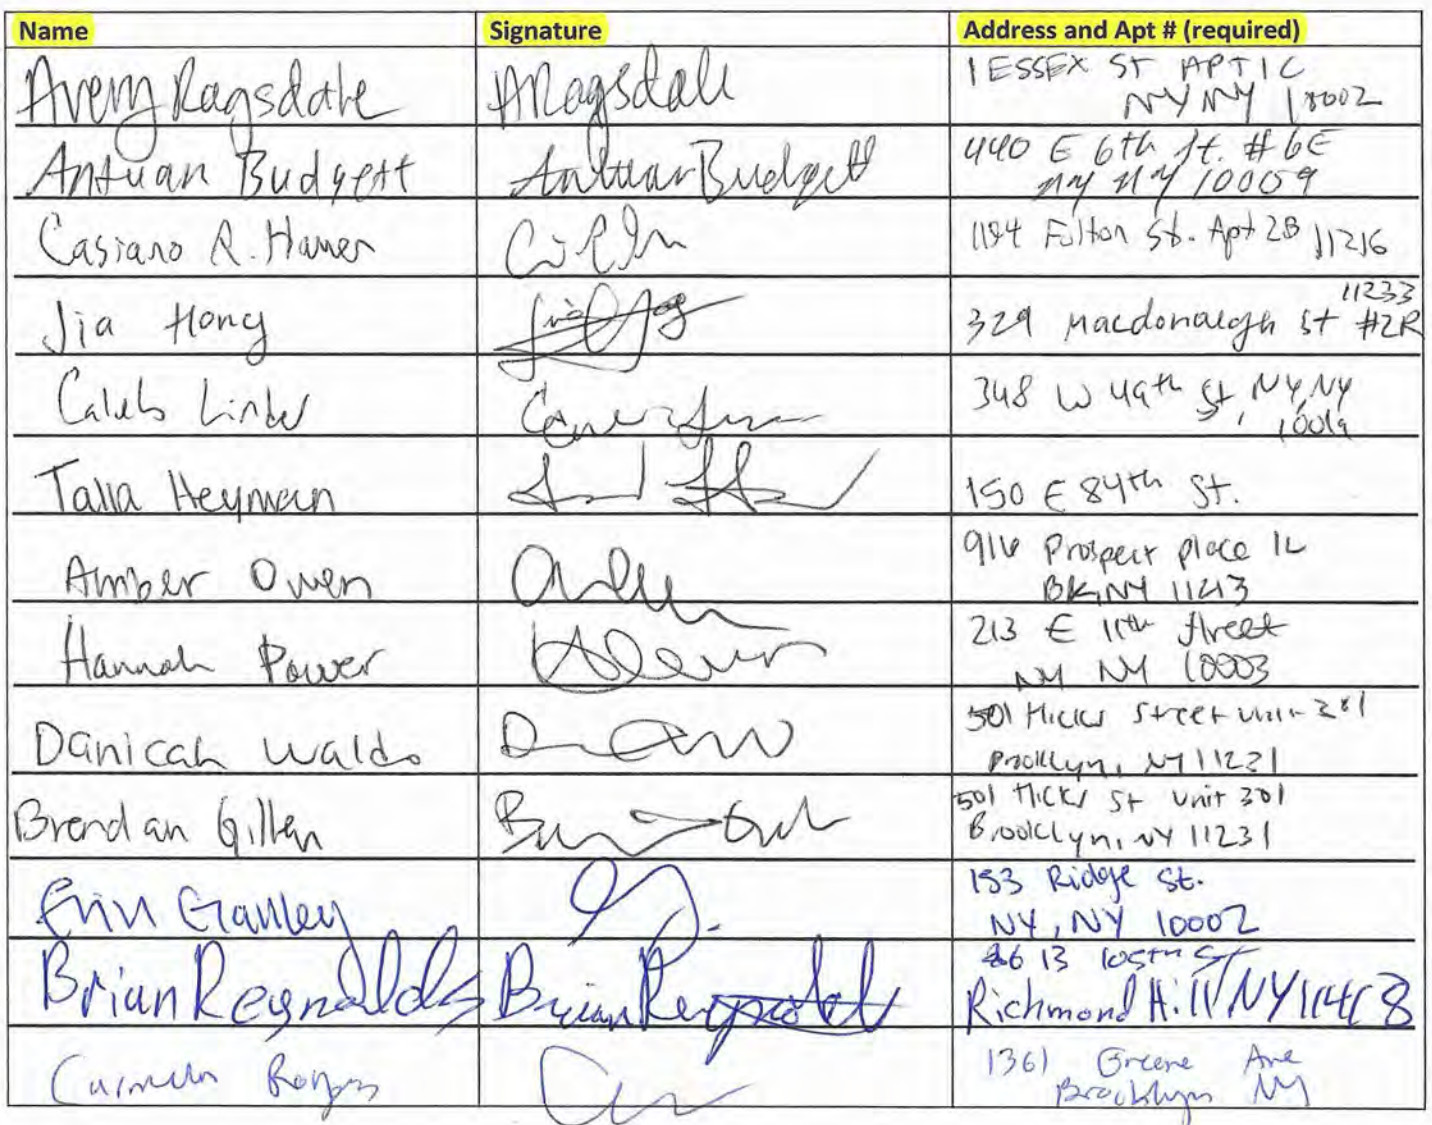 Name Signature Address and Apt # (required)
Avery Ragsdale ARagsdale 1 ESSEX ST APT 1C
NY NY 10002
Antuan Budgett Antuan Budgett 440 E 6th St. #6E
NY NY 10009
Casiano R. Hamer 1184 Fulton St. Apt 2B 11216
Jia Hong 11233
329 Macdonaugh St #2R
Caleb Linder 348 W 49th St, NY, NY
10019
Talia Heyman 150 E 84th St.
Amber Owen 916 Prospect place 1L
BK, NY 11213
Hannah Power 213 E 11th street
NY NY 10003
Danicah Waldo 501 Hicks Street unit 301
Brooklyn, NY 11231
Brendan Gillen 501 Hicks St unit 301
Brooklyn, NY 11231
Erin Ganley 153 Ridge St.
NY, NY 10002
Brian Reynolds Brian Reynolds 8613 105th St
Richmond Hill NY 11418
Carmela 1361 Greene Ave
Brooklyn NY